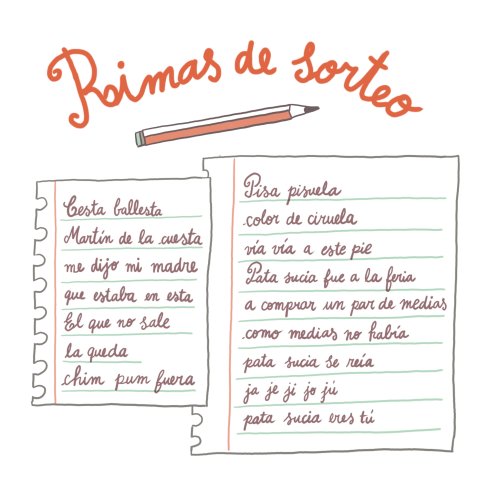 Rimas de sorteo
Cesta ballesta
Martín de la cuesta
me dijo mi madre
que estaba en esta
El que no sale
la queda
chim pum fuera
Pisa pisuela
color de ciruela
vía vía a este pie
Pata sucia fue a la feria
a comprar un par de medias
como medias no había
pata sucia se reía
ja je ji jo jú
pata sucia eres tú